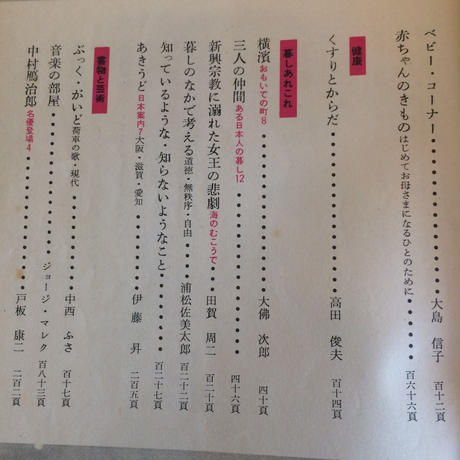 ベビー・コーナー 大島 信子 百十二頁
赤ちゃんのきもの はじめてお母さまになるひとのために 百六十六頁
健康
くすりとからだ 高田 俊夫 百十四頁
暮しあれこれ
横濱 おもいでの町8 大佛 次郎 四十頁
三人の仲間 ある日本人の暮し12 四十六頁
新興宗教に溺れた女王の悲劇 海のむこうで 田賀 周二 百二十頁
暮しのなかで考える 道徳・無秩序・自由 浦松佐美太郎 百二十四頁
知っているような・知らないようなこと 百二十七頁
あきうど 日本案内7 大阪・滋賀・愛知 伊藤 昇 二百五頁
書物と芸術
ぶっく・がいど 荷車の歌・現代 中西 ふさ 百十七頁
音楽の部屋 ジョージ・マレク 百八十三頁
中村鴈治郎 名優登場4 戸板 康二 二百二頁